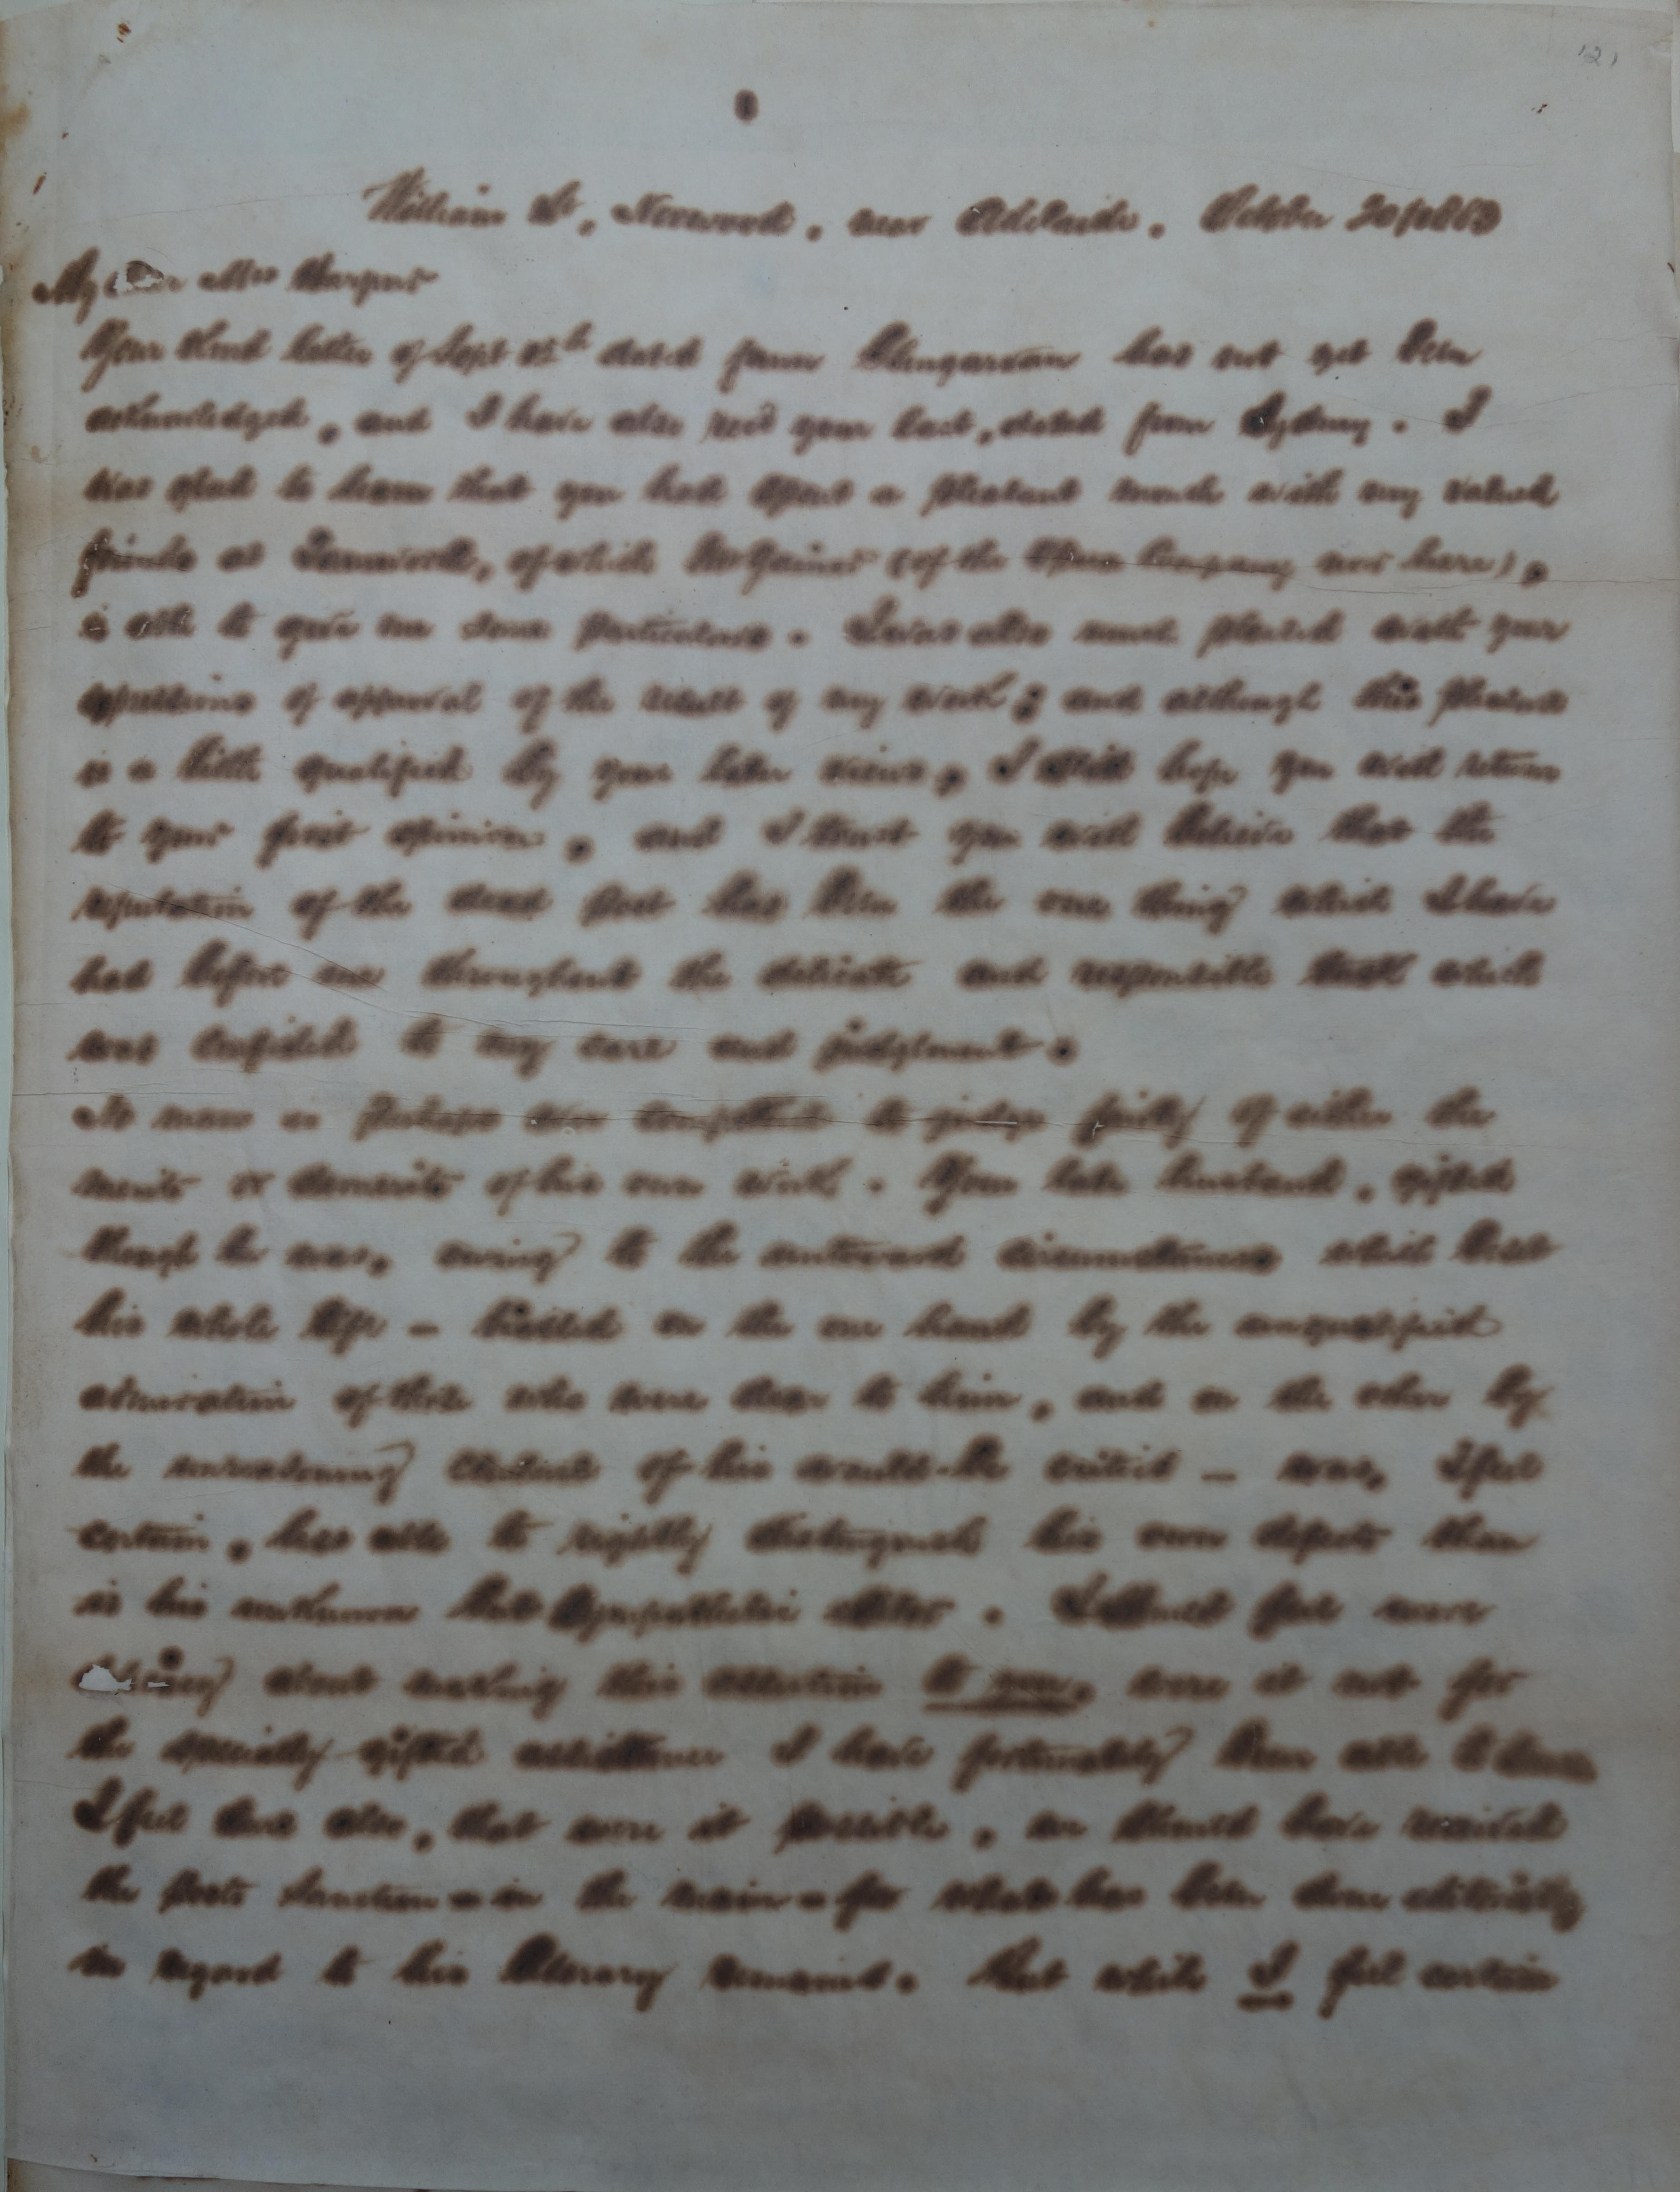 121
William St, Norwood, near Adelaide. October 20/1883
My dear Mrs Harpur
Your kind letter of Sept 12th dated from has not yet been
acknowledged, and I have also rec'd your last, dated from Sydney. I
was glad to learn that you had spent a pleasant month with my valued
friends at Tamworth, of which Mr (of the Opera Company now here),
is able to give me some particulars. I was also much pleased with your
expressions of approval of the result of my work; and although this pleasure
is a little qualified by your later views, I still hope you will return
to your first opinion, and I trust you will believe that the
reputation of the dead poet has been the one thing which I have
had before me throughout the delicate and responsible task which
was confided to my care and judgement.
No man is perhaps ever competent to judge fairly of either the
merits or demerits of his own work. Your late husband, gifted
though he was, owing to the untoward circumstances which beset
his whole life — biassed on the one hand by the unqualified
admiration of those who were dear to him, and on the other by
the unreasoning of his would-be critics — was, I feel
certain, less able to rightly distinguish his own defects than
is his unknown but sympathetic editor. I should feel more
about making this assertion to you, were it not for
the specially gifted assistance I have fortunately been able to
I feel sure also, that were it possible, we should have received
the poet's sanction — in the main — for what has been done editorially
in regard to his literary remains. But while I feel certain